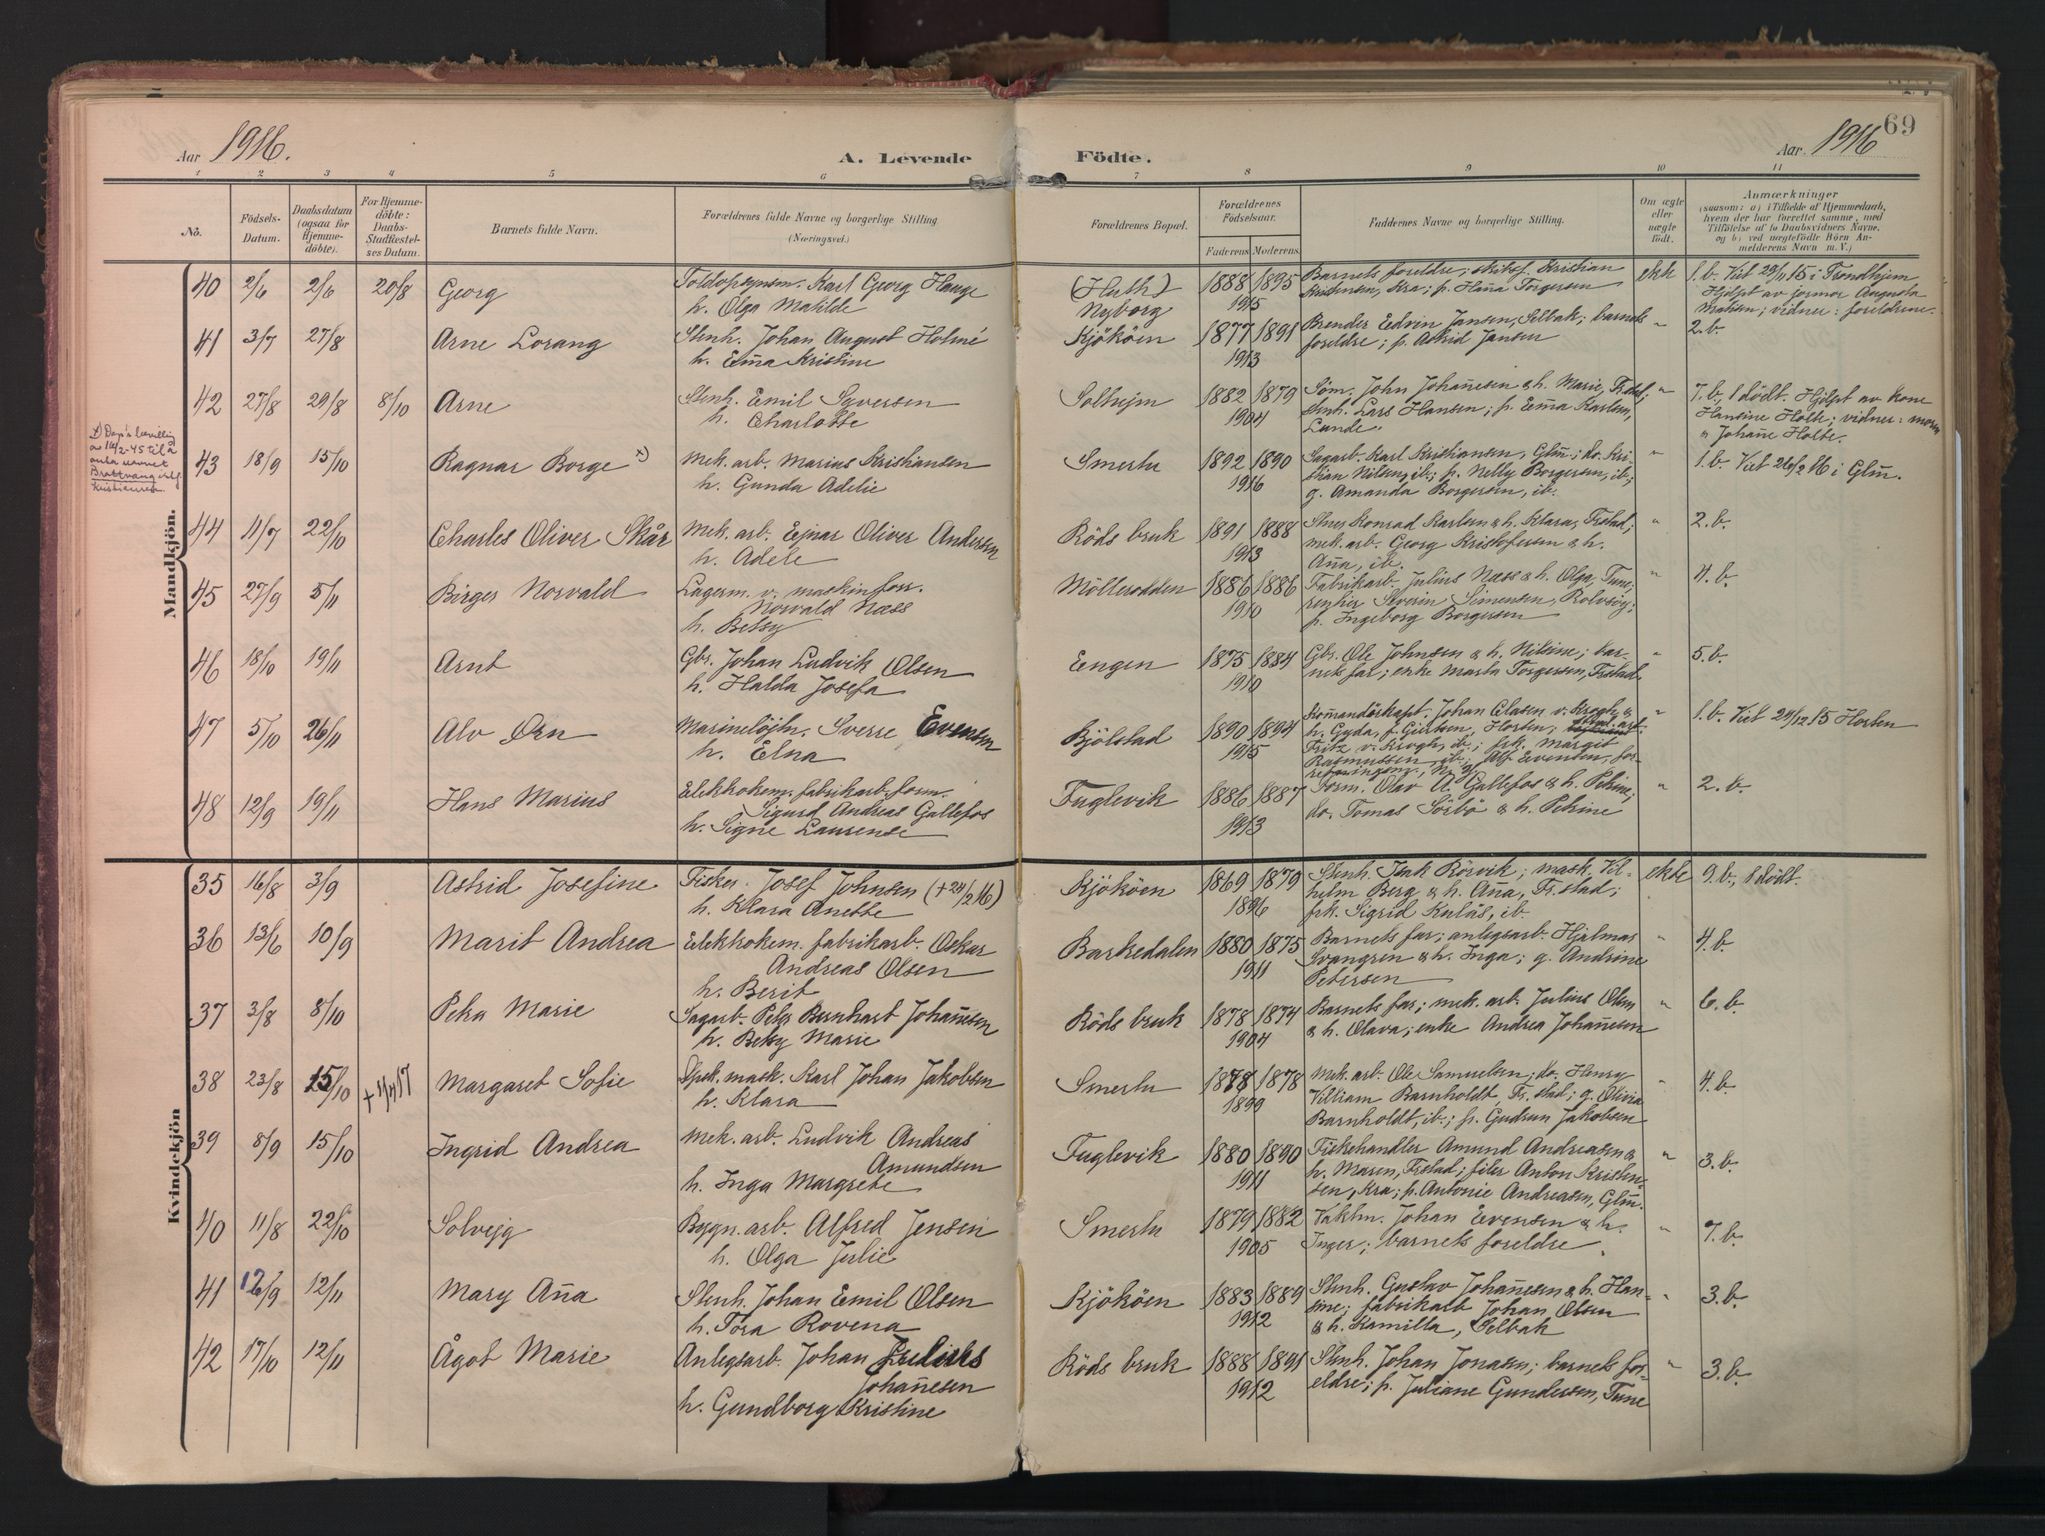 Aar 1916.
A. Levende Födte.
Aar. 1916
69
1 2 3 4 5 6 7 8 9 10 11
No.
Födsels-Datum.
Daabsdatum (ogsaa for Hjemme-döbte).
For Hjemme-döbte: Daabs-Stadfæstel-ses Datum.
Barnets fulde Navn.
Forældrenes fulde Navne og borgerlige Stilling. (Næringsvei.)
Forældrenes Bopæl.
Forældrenes Födselsaar.
Faderens Moderens
Faddernes Navne og borgerlige Stilling.
Om ægte eller uægte födt.
Anmærkninger
(saasom: a) i Tilfælde af Hjemmedaab, hvem der har forrettet samme, med Tilföielse af to Daabsvidners Navne, og b) ved uægtefödte Börn An-melderens Navn m. V.)
Mandkjön.
40 2/6 2/6 20/8 Georg
Toldopsynsm. Karl Georg Hauge
h. Olga Matilde
(Huth) Nyborg
1888 1895
1915
Barnets foreldre; Kristian
Kristensen, Kra; p. Hana Torgersen
ekte
1. b. Viet 29/11 15 i Trondhjem
Hjdpt av jormor Augusta
Matsen; vidner: foreldrene.
41 3/7 27/8 Arne Lorang
Stenh. Johan August Holmé
h. Em̄a Kristine
Kjököen
1877 1891
1913
Brender Edvin Jansen, Selbak; barnets
foreldre; p. Astrid Jansen
"
2. b.
42 27/8 29/8 8/10 Arne
Stenh. Emil Syversen
h. Charlotte
Solhejm
1882 1879
1904
Söm. John Johan̄esen & h. Marie, Fr.stad;
stenh. Lars Hansen; p. Em̄a Karlsen,
Lunde.
"
7. b., 1 dödt. Hjdpt av kone
Hansine Holte; vidner: moren
& Johan̄e Holte.
x) Dep's bevilling
av 16/2-45 til å
anta navnet
Brattvang istf.
Kristiansen.
43 18/9 15/10 Ragnar Borge x)
Mek. arb. Marius Kristiansen
h. Gunda Adelie
Smertu
1892 1890
1916
Sagarb. Karl Kristiansen, Glm̄; do. Kri-
stian Nilsen, ib.; p. Nelly Borgersen, ib.;
g. Amanda Borgersen, ib.
"
1. b. Viet 26/2 16 i Glm̄.
44 11/7 22/10 Charles Oliver Skår
Mek. arb. Ejnar Oliver Andersen
h. Adele
Röds bruk
1891 1888
1913
Konrad Karlsen & h. Klara, Fr.stad;
mek. arb. Georg Kristofersen & h.
An̄a, ib.
"
2. b.
45 27/9 5/11 Birger Norvald
Lagerm. v. maskinforr.
Norvald Næss
h. Betsy
Möllerodden
1886 1886
1910
Fabrikarb. Julius Næss & h. Olga, Tune;
Severin Simensen, Rolvsöy;
p. Ingeborg Borgersen
"
4. b.
46 18/10 19/11 Arnt
Gbr. Johan Ludvik Olsen
h. Halda Josefa
Eengen
1875 1884
1910
Gbr. Ole Johnsen & h. Nikine; bar-
nets far; enke Marta Torgersen, Fr.stad
"
5. b.
47 5/10 26/11 Alv Ørn
Marinelöjtn. Sverre Evensen
h. Elna
Bjölstad
1890 1894
1915
Kom̄andörkapt. Johan Clasen v. Krogh &
h. Gyda, f. Gultsen, Horten;
Fritz v. Krogh, ib.; frk. Margit
Rasmussen ib.; Alf Evensen, for-
"
1. b. Viet 29/12 15 Horten
48 12/9 19/11 Hans Marius
Elektrokem. fabrikarb. form.
Sigurd Andreas Gallefos
h. Signe Laurense
Fuglevik
1886 1887
1913
Form. Olav A. Gallefos & h. Petrine;
do. Tomas Sörbö & h. Petrine
"
2. b.
Kvindekjön
35 16/8 3/9 Astrid Josefine
Fisker. Josef Johnsen (+ 24/2 16)
h. Klara Anette
Kjököen
1869 1879
1896
Stenh. Rörvik; mask. Vil-
helm Berg & h. An̄a, Fr.stad;
frk. Sigrid Kalås, ib.
ekte
9. b., 1 dödt.
36 13/6 10/9 Marit Andrea
Elektrokem. fabrikarb. Oskar
Andreas Olsen
h. Berit
Barkedalen
1880 1875
1911
Barnets far; anlegsarb. Hjalmar
Svangren & h. Inga; g. Andrine
Petersen
"
4. b.
37 3/8 8/10 Petra Marie
Sagarb. Peter Bernhart Johan̄esen
h. Betsy Marie
Röds bruk
1878 1874
1904
Barnets far; mek. arb. Julius Olsen
& h. Olava; enke Andrea Johan̄esen
"
6. b.
38 23/8 15/10 + 1/4 17 Margaret Sofie
Spek. mask. Karl Johan Jakobsen
h. Klara
Smertu
1878 1878
1899
Mek. arb. Ole Samuelsen; do. Henry
William Barnholdt, Fr.stad; g. Olivia
Barnholdt, ib.; p. Gudrun Jakobsen
"
4. b.
39 8/9 15/10 Ingrid Andrea
Mek. arb. Ludvik Andreas
Amundsen
h. Inga Margrete
Fuglevik
1880 1890
1911
Fiskehandler Amund Andreasen &
h. Maren, Fr.stad; filer Anton Kristen-
sen, Kra; p. Antonie Andreasen, Glm̄.
"
3. b.
40 11/8 22/10 Solvejg
Bygn. arb. Alfred Jensen
h. Olga Julie
Smertu
1879 1882
1905
Vaktm. Johan Evensen & h.
Inger; barnets foreldre
"
7. b.
41 12/9 12/11 Mary An̄a
Stenh. Johan Emil Olsen
h. Tora Rovena
Kjököen
1883 1889
1912
Stenh. Gustav Johan̄esen & h. Han-
sine; fabrikarb Johan Olsen
& h. Kamilla, Selbak
"
3. b.
42 17/10 12/11 Ågot Marie
Anlegsarb. Johan Fredriks
Johan̄esen
h. Gundborg Kristine
Röds bruk
1888 1891
1912
Stenh. Johan Jonasen; barnets for-
eldre; p. Juliane Gundersen, Tune
"
3. b.